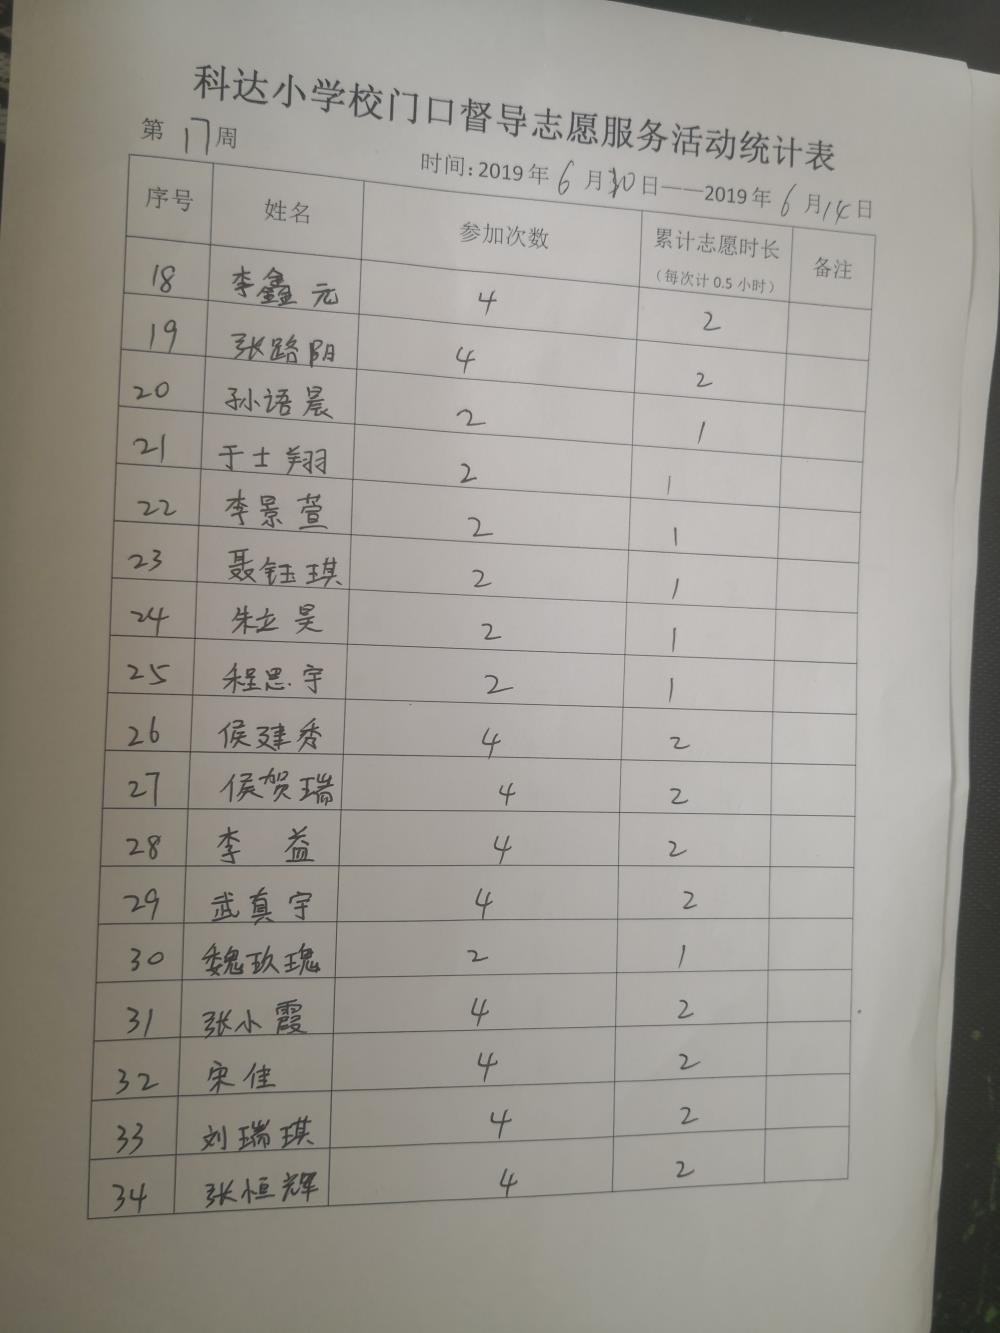 科达小学校门口督导志愿服务活动统计表
第 17 周
时间: 2019 年 6 月 10 日——2019 年 6 月 14 日
序号 姓名 参加次数 累计志愿时长 备注
（每次计 0.5 小时）
18 李鑫元 4 2
19 张路阴 4 2
20 孙语晨 2 1
21 于士翔 2 1
22 李景萱 2 1
23 聂钰琪 2 1
24 朱立昊 2 1
25 程思宇 2 1
26 侯建秀 4 2
27 侯贺瑞 4 2
28 李益 4 2
29 武真宇 4 2
30 魏玖瑰 2 1
31 张小霞 4 2
32 宋佳 4 2
33 刘瑞琪 4 2
34 张恒辉 4 2